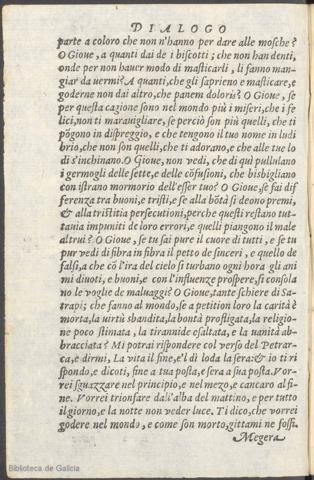 DIALOGO
parte a coloro che non n'hanno per dare alle mosche?
O Gioue, a quanti dai de i biscotti; che non han denti,
onde per non hauer modo di masticarli, li fanno man-
giar da uermi? A quanti, che gli saprieno e masticare, e
goderne non dai altro, che panem doloris? O Gioue, se
per questa cagione sono nel mondo più i miseri, che i fe
lici, non ti marauigliare, se perciò son più quelli, che ti
põgono in dispreggio, e che tengono il tuo nome in ludi
brio, che non son quelli, che ti adorano, e che alle tue lo
di s'inchinano. O Gioue, non vedi, che di quì pullulano
i germogli delle sette, e delle cõfusioni, che bisbigliano
con istrano mormorio dell'esser tuo? O Gioue, se fai dif
ferenza tra buoni, e tristi, e se alla bõtà si deono premi,
& alla tristitia persecutioni, perche questi restano tut-
tauia impuniti de loro errori, e quelli piangono il male
altrui? O Gioue, se tu sai pure il cuore di tutti, e se tu
pur vedi di fibra in fibra il petto de sinceri, e quello de
falsi, a che cõ l'ira del cielo si turbano ogni hora gli ani
mi diuoti, e buoni, e con l'influenze prospere, si consola
no le voglie de maluaggi? O Gioue, tante schiere di Sa-
trapi; che fanno al mondo, se a petition loro la carità è
morta, la uirtù sbandita, la bontà profligata, la religio-
ne poco stimata, la tirannide esaltata, e la uanità ab-
bracciata? Mi potrai rispondere col verso del Petrar-
ca, e dirmi, La vita il fine, e'l dì loda la sera: & io ti ri
spondo, e dicoti, fine a tua posta, e sera a sua posta. Vor-
rei sguazzare nel principio, e nel mezo, e cancaro al fi-
ne. Vorrei trionfare dall'alba del mattino, e per tutto
il giorno, e la notte non veder luce. Ti dico, che vorrei
godere nel mondo, e come son morto, gittami ne fossi.
Megera
Biblioteca de Galicia